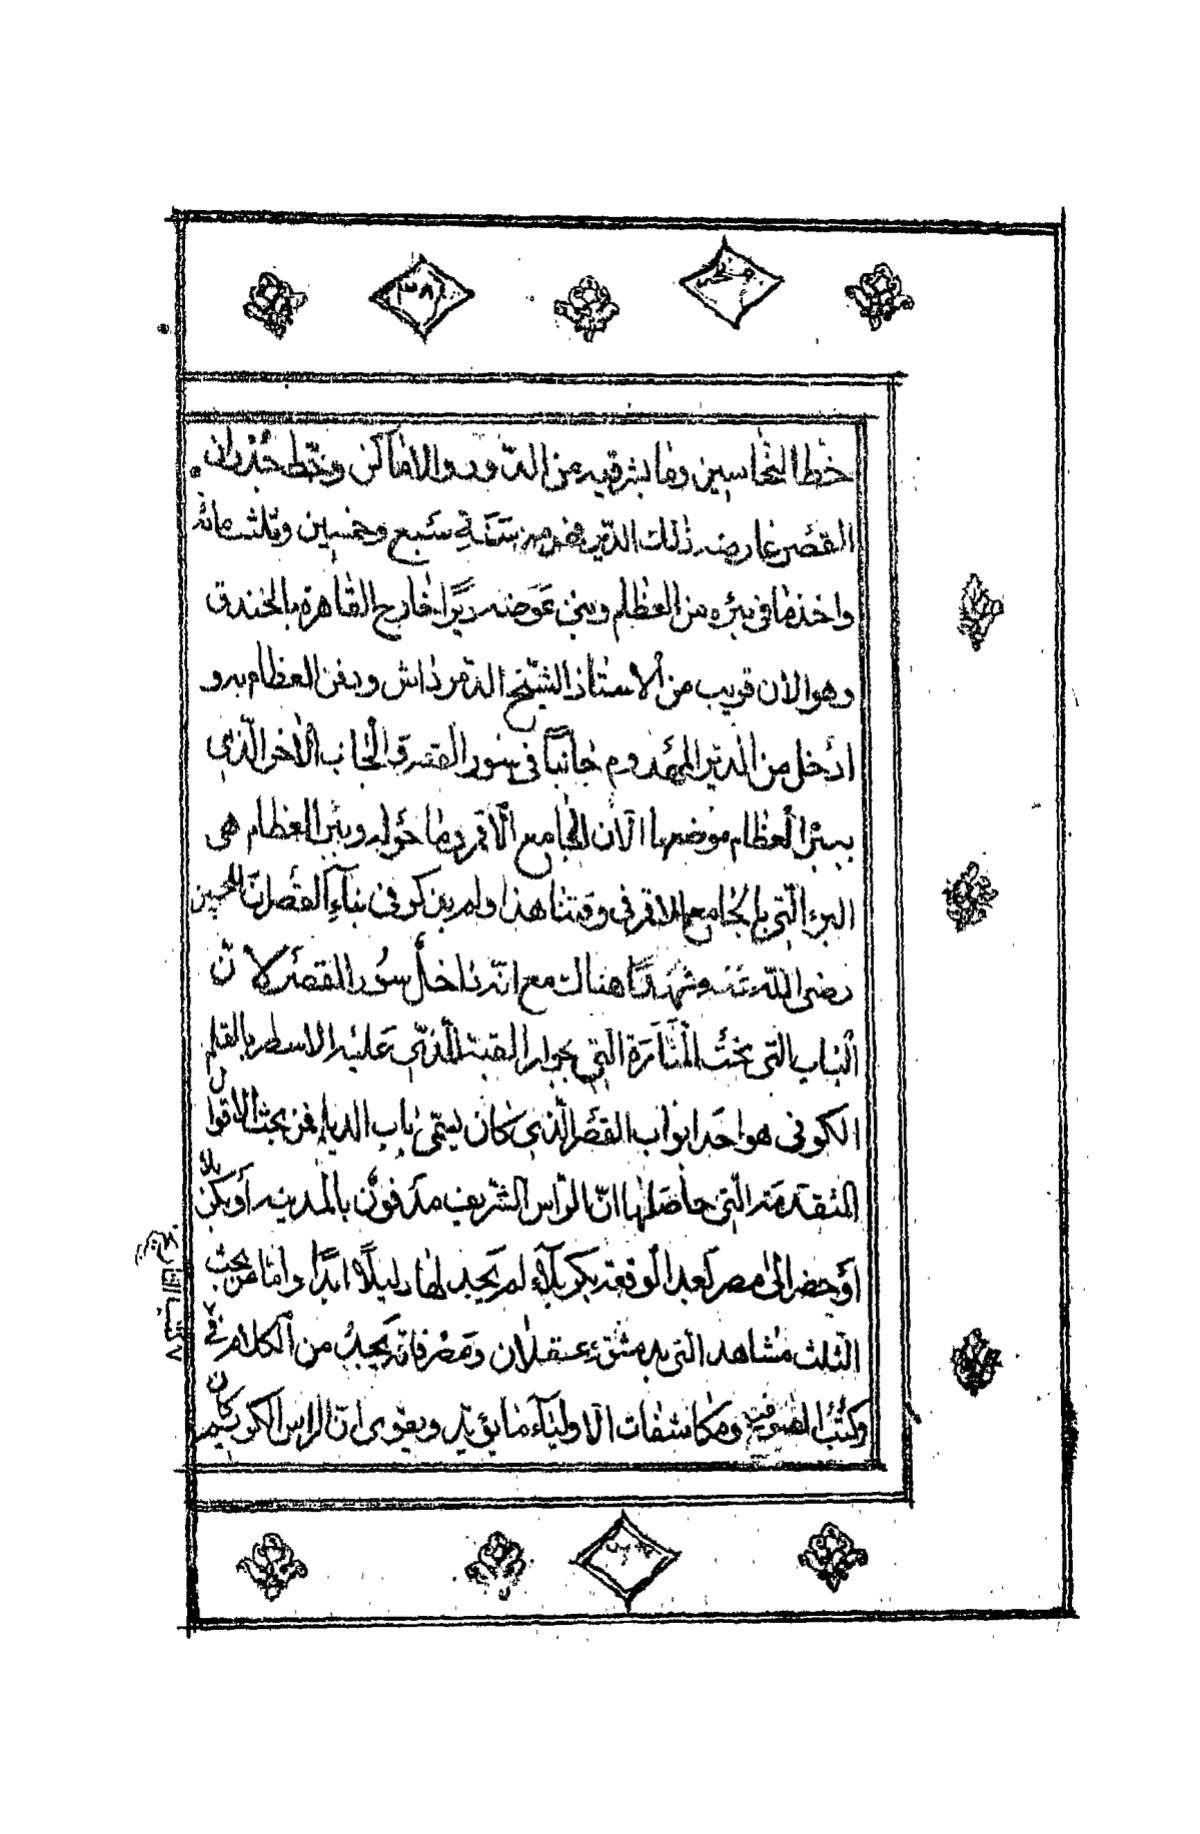 ٣٨
خط النحاسين وما بشرقيه من الدور والاماكن وخط جدران
القصر عارضه ذلك الدير فهدمه سَنَة سَبع وخمسين وثلثمائة
واخذها في بئره من العظام وبنى عَوَضه ديرًا خارج القاهرة بالخندق
وهو الان قريب من الاستاذ الشيخ الدمرداش ودفن العظام به و
ادخل من الدير المهدوم جانبًا في سور القصر في الجانب الاخر الذي
ببئر العظام موضعها الآن الجامع الاقمر وما حوله وبئر العظام هي
البئر التي بالجامع الاقمر في وقتنا هذا ولم يذكر في بناء القصر ان للحسين
رضى الله عنه مشهدًا هناك مع انه داخل سور القصر لان
الباب التي تحت المنارة التي بجوار القبة الذي عليه الاسطر بالقلم
الكوفى هو احد ابواب القصر الذي كان يسمى باب الديلم فمن بحث الاقوال
المتقدمة التي حاصلها انّ الراس الشريف مدفون بالمدينه أو بكربلاء
أو حضر الى مصر بعد الوقعة بكربلاء لم يجد لها دليلًا ابدًا واما من بحث
الثلث مشاهد التي بدمشق وعسقلان ومصر فانه يجد من الكلام في
وكتب الصوفية ومكاشفات الاولياء ما يؤيد ويقوى ان الراس الكريم كان